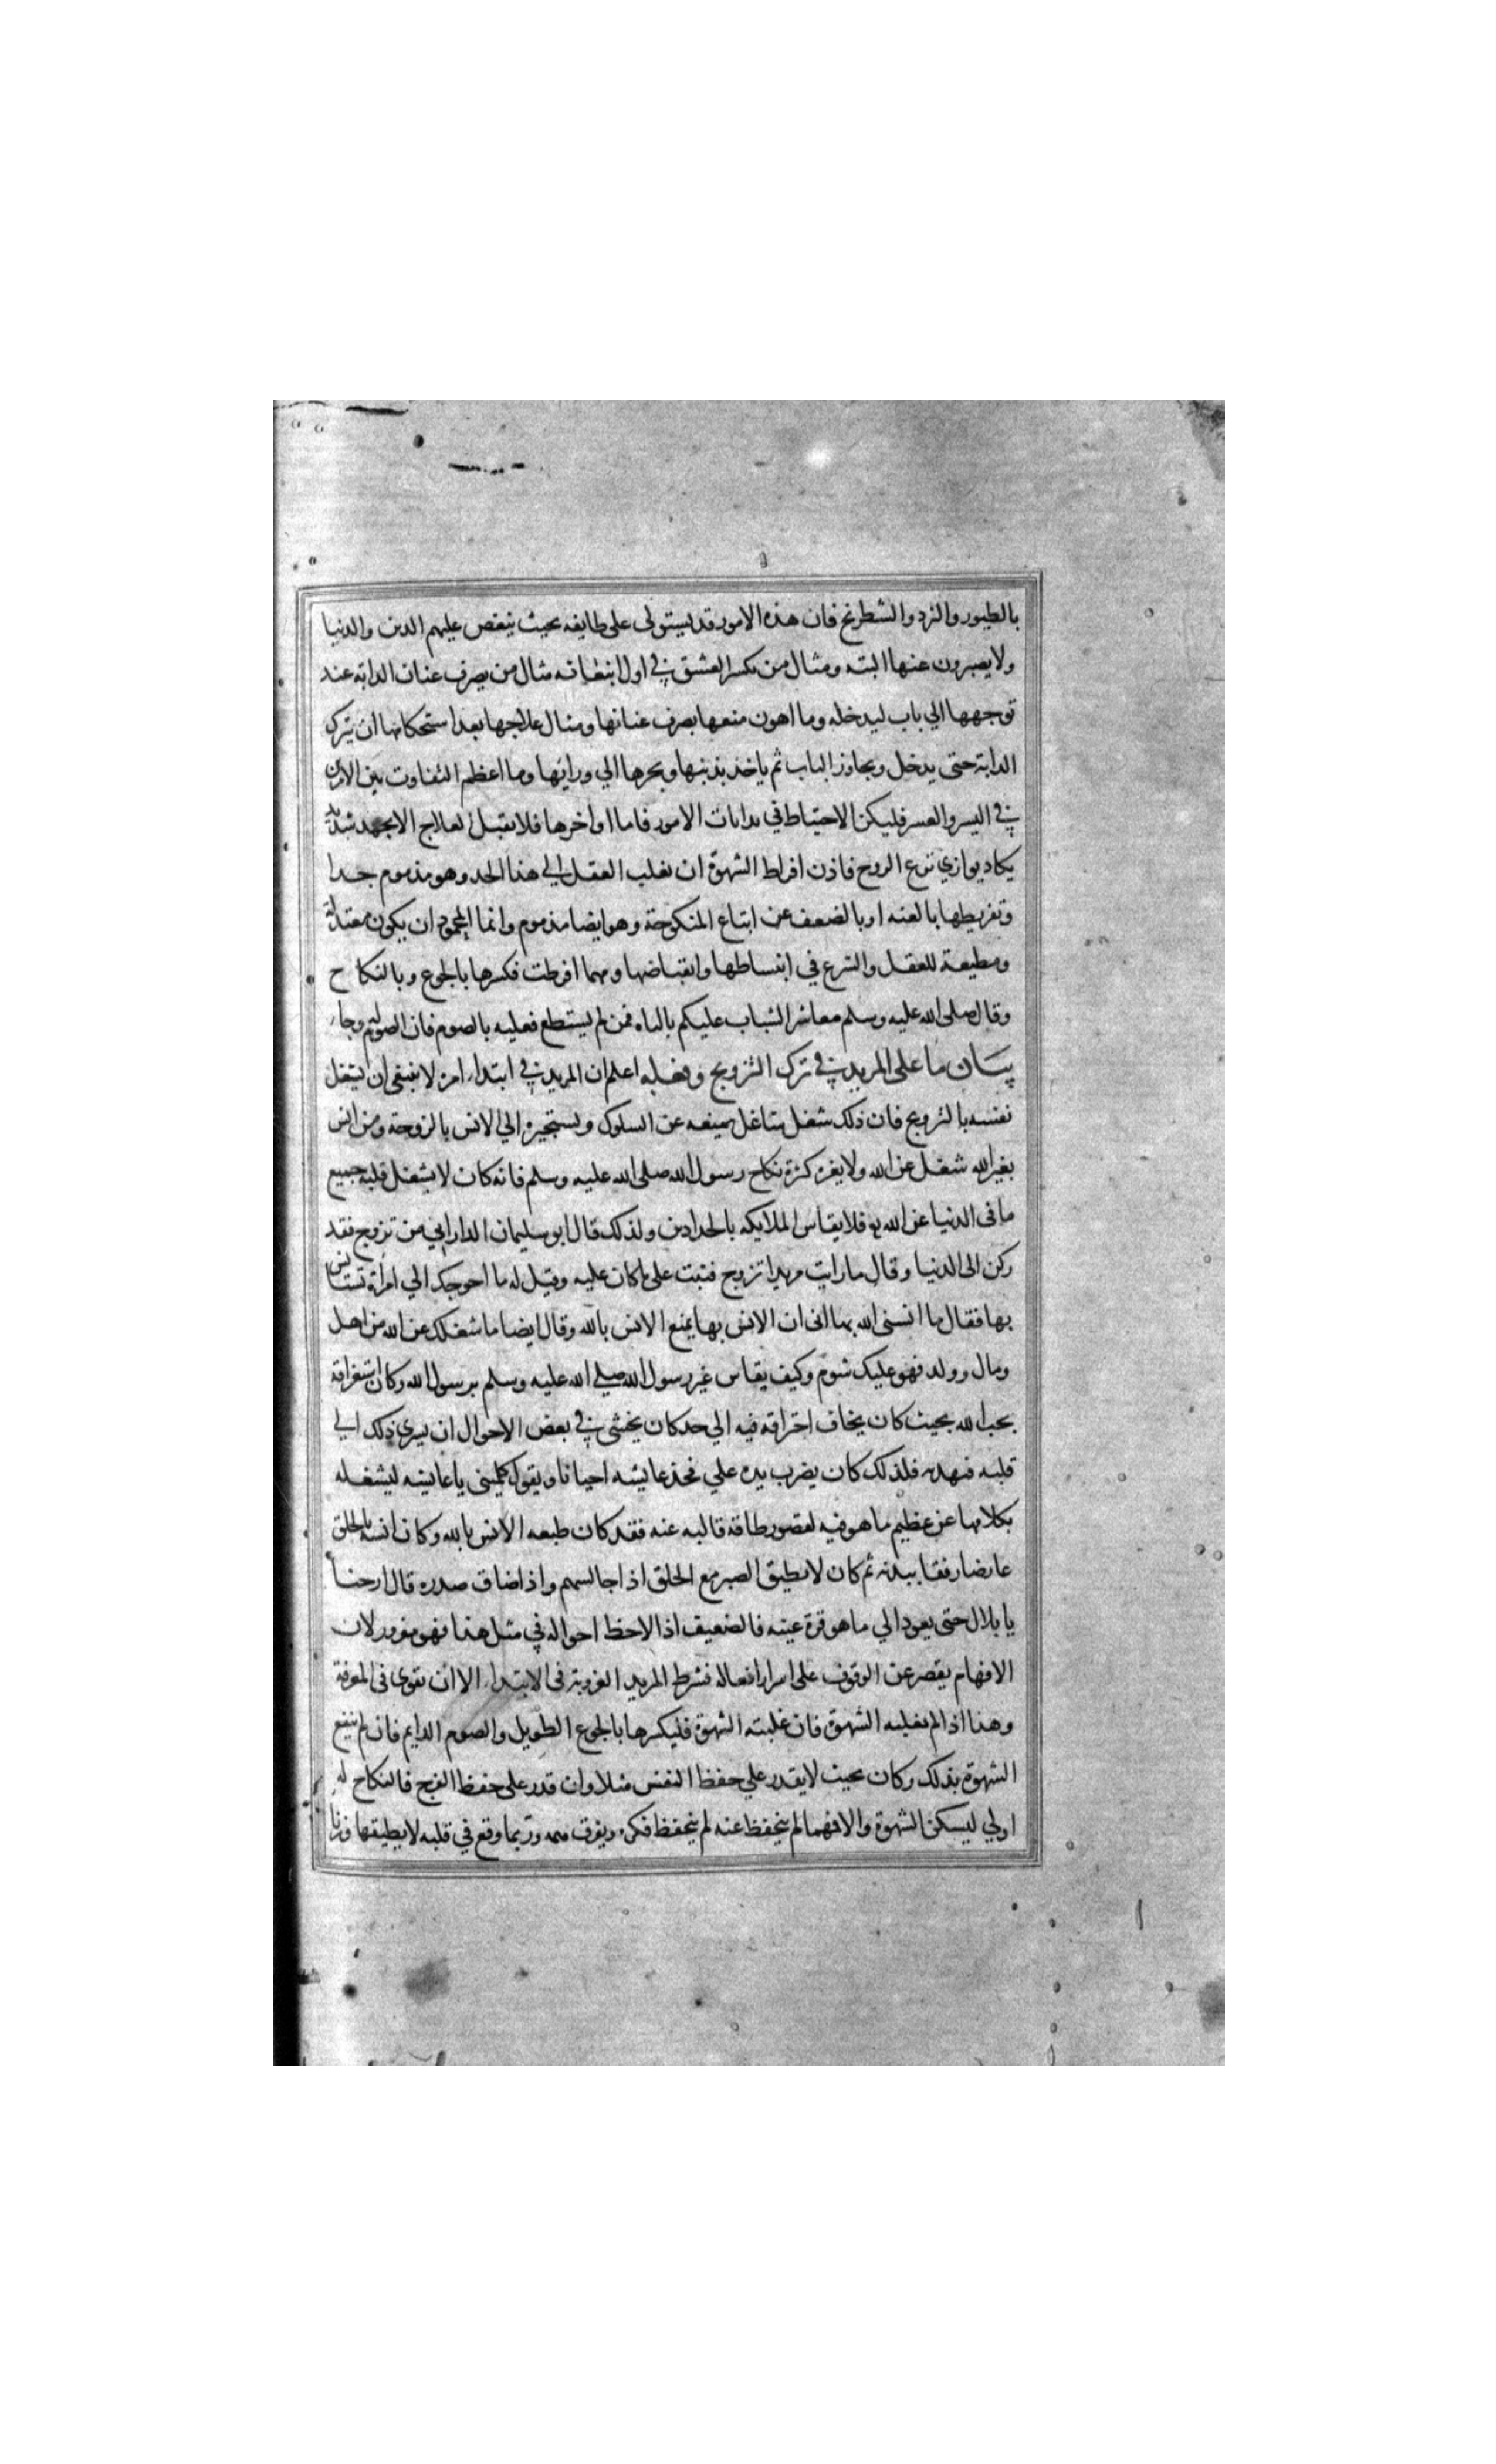 بالطيور والنرد والشطرنج فان هذه الامور قد يستولى على طايفه بحيث ينغص عليهم الدين والدنيا
ولا يصبرون عنها البته ومثال من يكسر العشق في اول انبعاثه مثال من يصرف عنان الدابة عند
توجهها الي باب ليدخله وما اهون منعها بصرف عنانها ومثال علاجها بعد استحكامها ان يترك
الدابة حتى يدخل ويجاوز الباب ثم ياخذ بذنبها ويجرها الي ورايها وما اعظم التفاوت بين الامرين
في اليسر والعسر فليكن الاحتياط في بدايات الامور فاما اواخرها فلا يقبل لعلاج الا بجهد شديد
يكاد يوازي نزع الروح فاذن افراط الشهوة ان يغلب العقل الي هذا الحد وهو مذموم جدا
وتفريطها بالعنه او بالضعف عن امتاع المنكوحة وهو ايضا مذموم وانما المحمود ان يكون معتدلة
ومطيعة للعقل والشرع في انبساطها وانقباضها ومهما افرطت فكسرها بالجوع وبالنكاح
وقال صلى الله عليه وسلم معاشر الشباب عليكم بالباه فمن لم يستطع فعليه بالصوم فان الصوم له وجاء
بيان ما على المريد في ترك التزويج وفعله اعلم ان المريد في ابتداء امره لا ينبغي ان يشغل
نفسه بالتزويج فان ذلك شغل شاغل يمنعه عن السلوك ويستجره الي الانس بالزوجة ومن انس
بغير الله شغل عن الله ولا يغره كثرة نكاح رسول الله صلى الله عليه وسلم فانه كان لا يشغل قلبه جميع
ما في الدنيا عن الله فلا يقاس الملايكه بالحدادين ولذلك قال ابو سليمان الداراني من تزوج فقد
ركن الى الدنيا وقال ما رايت مريدا تزوج فثبت على ما كان عليه وقيل له ما احوجك الي امراة تستانس
بها فقال ما انسنى الله بها انى ان الانس بها يمنع الانس بالله وقال ايضا ما شغلك عن الله من اهل
ومال وولد فهو عليك شوم وكيف يقاس غير رسول الله صلي الله عليه وسلم برسول الله وكان استغراقه
بحب الله بحيث كان يخاف احتراقه فيه الي حد كان يخشى في بعض الاحوال ان يسري ذلك الي
قلبه فيهدمه فلذلك كان يضرب يده علي فخذ عايشه احيانا ويقول كلميني يا عايشه ليشغله
بكلامها عن عظيم ما هو فيه لقصور طاقة قالبه عنه فقد كان طبعه الانس بالله وكان انسه بالخلق
عارضا رفقا ببدنه ثم كان لا يطيق الصبر مع الخلق اذا جالسهم واذا ضاق صدره قال ارحنا
يا بلال حتى يعود الي ما هو قرة عينه فالضعيف اذا لاحظ احواله في مثل هذا فهو مغرور لان
الافهام يقصر عن الوقوف على اسرار افعاله فشرط المريد العزوبة فى الابتداء الا ان يقوى فى المعرفة
وهذا اذا لم يغلبه الشهوة فان غلبته الشهوة فليكسرها بالجوع الطويل والصوم الدايم فان لم ينقمع
الشهوة بذلك وكان بحيث لا يقدر علي حفظ النفس مثلا وان قدر على حفظ الفرج فالنكاح له
اولي ليسكن الشهوة والا فمهما لم يتحفظ عنه لم يتحفظ فكره ويفرق همه وربما وقع في قلبه لا يطيقها وزنا